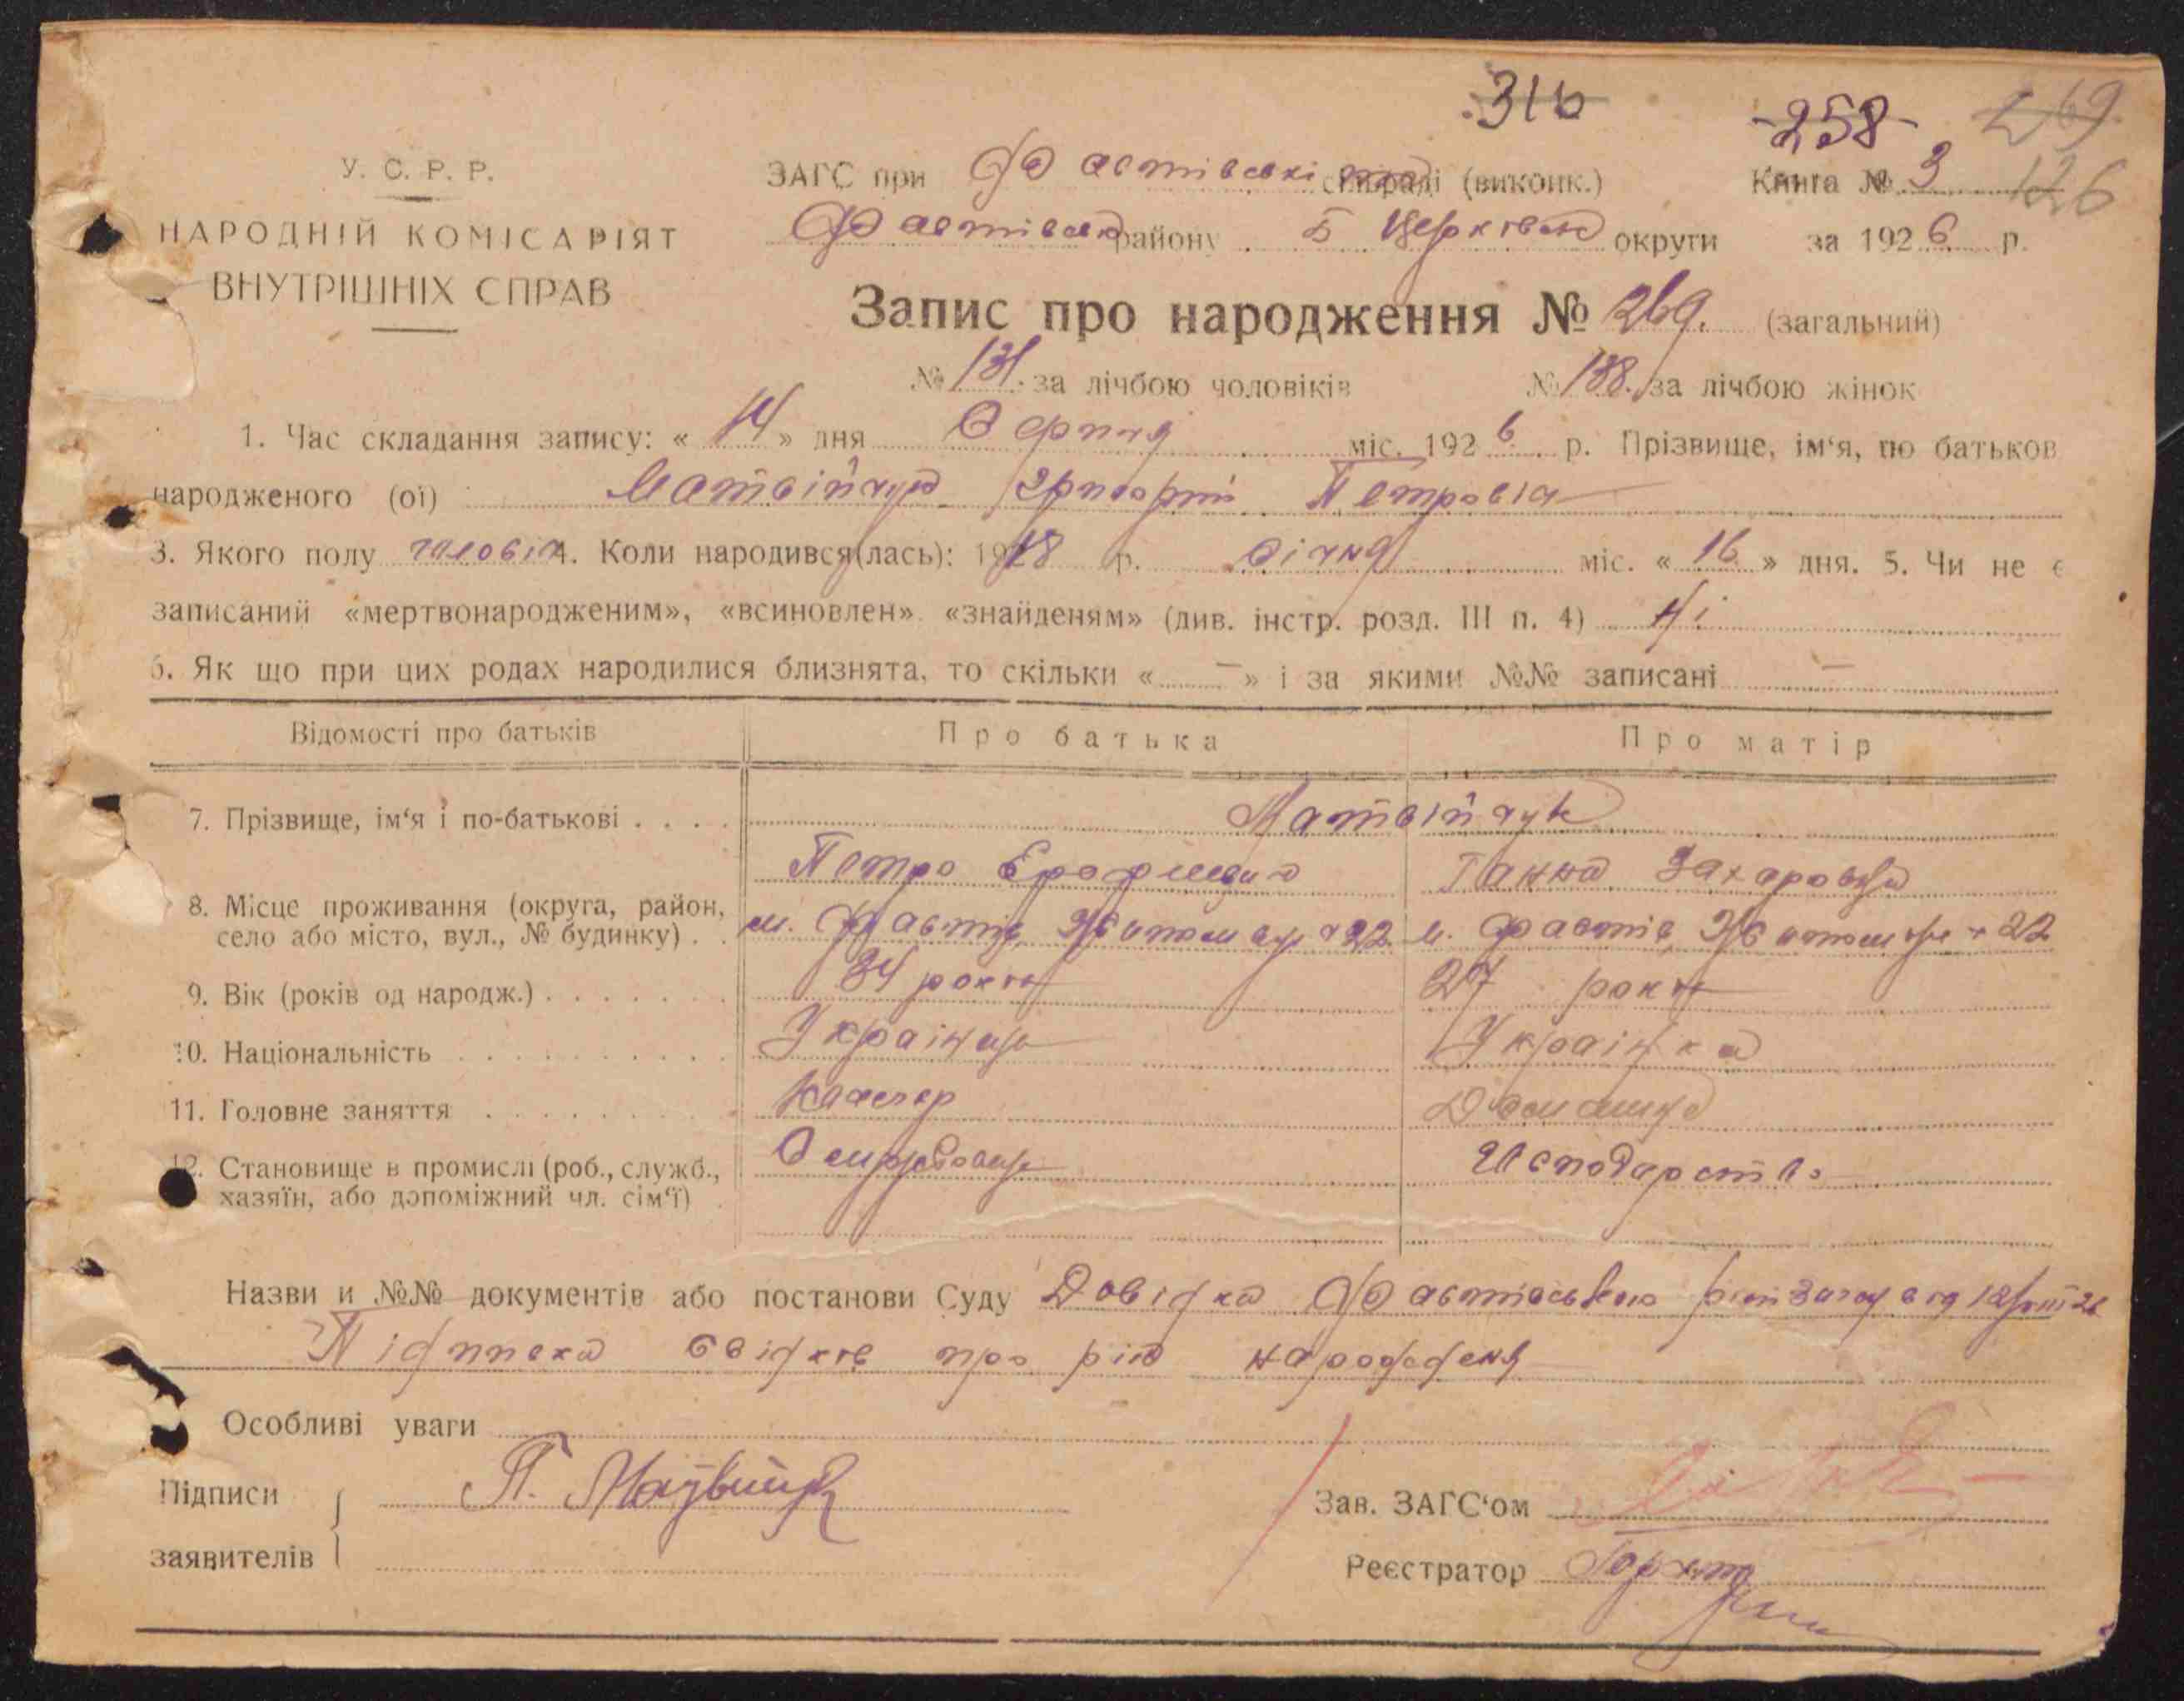 316
258 269
У. С. Р. Р.
ЗАГС при Фастівські сільраді (виконк.) Книга № 3 126
НАРОДНІЙ КОМІСАРІЯТ
Фастівськ району Б Церківськ округи за 1926 р.
ВНУТРІШНІХ СПРАВ
Запис про народження № 269. (загальний)
№ 131. за лічбою чоловіків № 138. за лічбою жінок
1. Час складання запису: « 14 » дня міс. 1926 р. Прізвище, ім‘я, по батьков
народженого (ої) Матвійчук Григорій Петровіч
3. Якого полу чоловіч 4. Коли народився(лась): 1918 р. Січня міс. « 16 » дня. 5. Чи не є
записаний «мертвонародженим», «всиновлен» «знайденям» (див. інстр. розд. III п. 4) Ні
6. Як що при цих родах народилися близнята, то скільки « — » і за якими №№ записані —
Відомості про батьків Про батька Про матір
7. Прізвище, ім‘я і по-батькові . . . . Матвійчук
Петро Ганна Захаровна
8. Місце проживання (округа, район,
село або місто, вул., № будинку) . . м. Фастів 22 м. Фастів 22
9. Вік (років од народж.) . . . . . . . 34 роки 27 роки
10. Національність . . . . . . . . . . Українець Українка
11. Головне заняття . . . . . . . . . Домашнє
12. Становище в промислі (роб., служб., Господарство
хазяїн, або допоміжний чл. сім‘ї) .
Назви и №№ документів або постанови Суду Довідка Фастівського від
Підписка свідків про рік народження
Особливі уваги
Підписи П. Матвійчук
Зав. ЗАГС‘ом
заявителів
Реєстратор